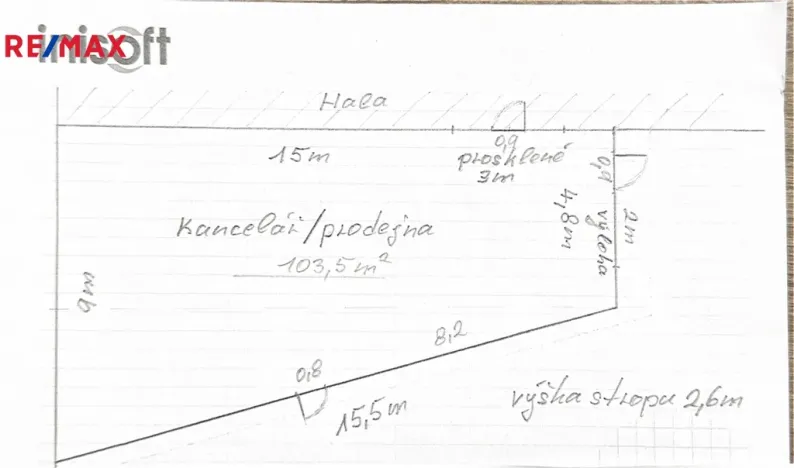 RE/MAX
inisoft
Hala
0,9
15m
prosklené
3m
0,9
4,8m
výloha
2m
Kancelář/prodejna
103,5m²
9m
8,2
0,8
15,5m
výška stropu 2,6m